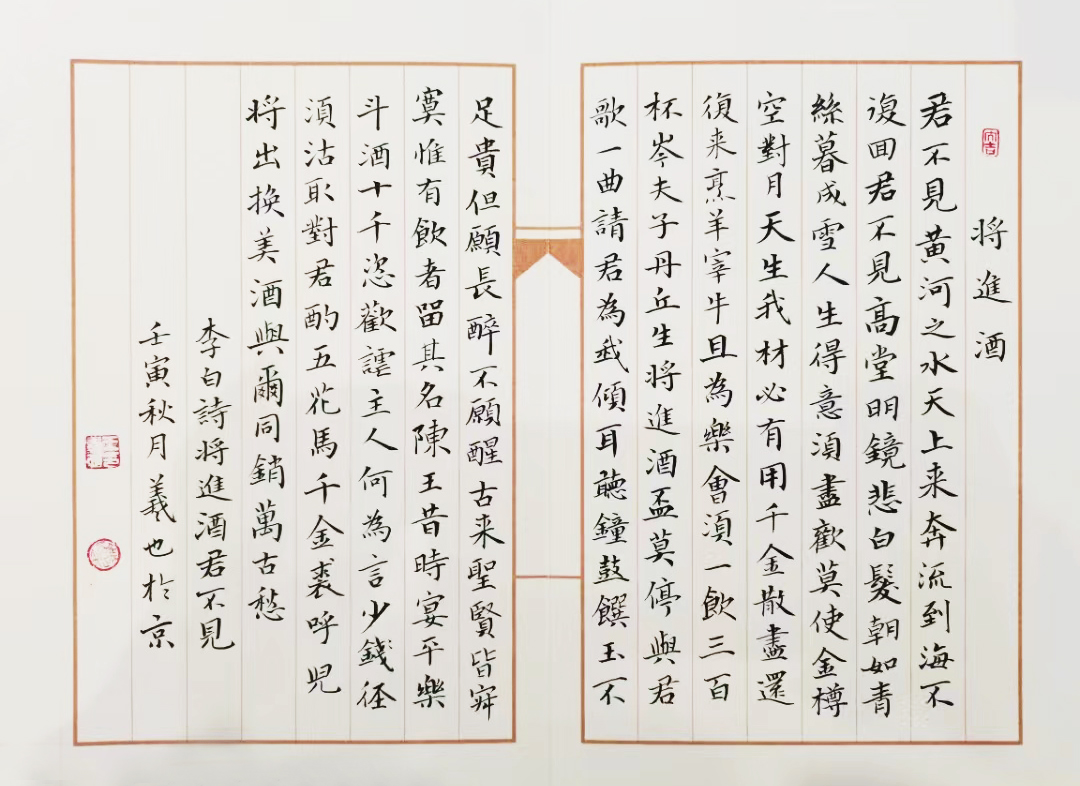 将進酒
君不見黄河之水天上来奔流到海不
復回君不見高堂明鏡悲白髮朝如青
絲暮成雪人生得意須盡歡莫使金樽
空對月天生我材必有用千金散盡還
復来烹羊宰牛且為樂會須一飲三百
杯岑夫子丹丘生将進酒盃莫停與君
歌一曲請君為我傾耳聽鐘鼓饌玉不
足貴但願長醉不願醒古来聖賢皆寂
寞惟有飲者留其名陳王昔時宴平樂
斗酒十千恣歡謔主人何為言少錢径
須沽取對君酌五花馬千金裘呼児
将出換美酒與爾同銷萬古愁
李白詩将進酒君不見
壬寅秋月羲也於京